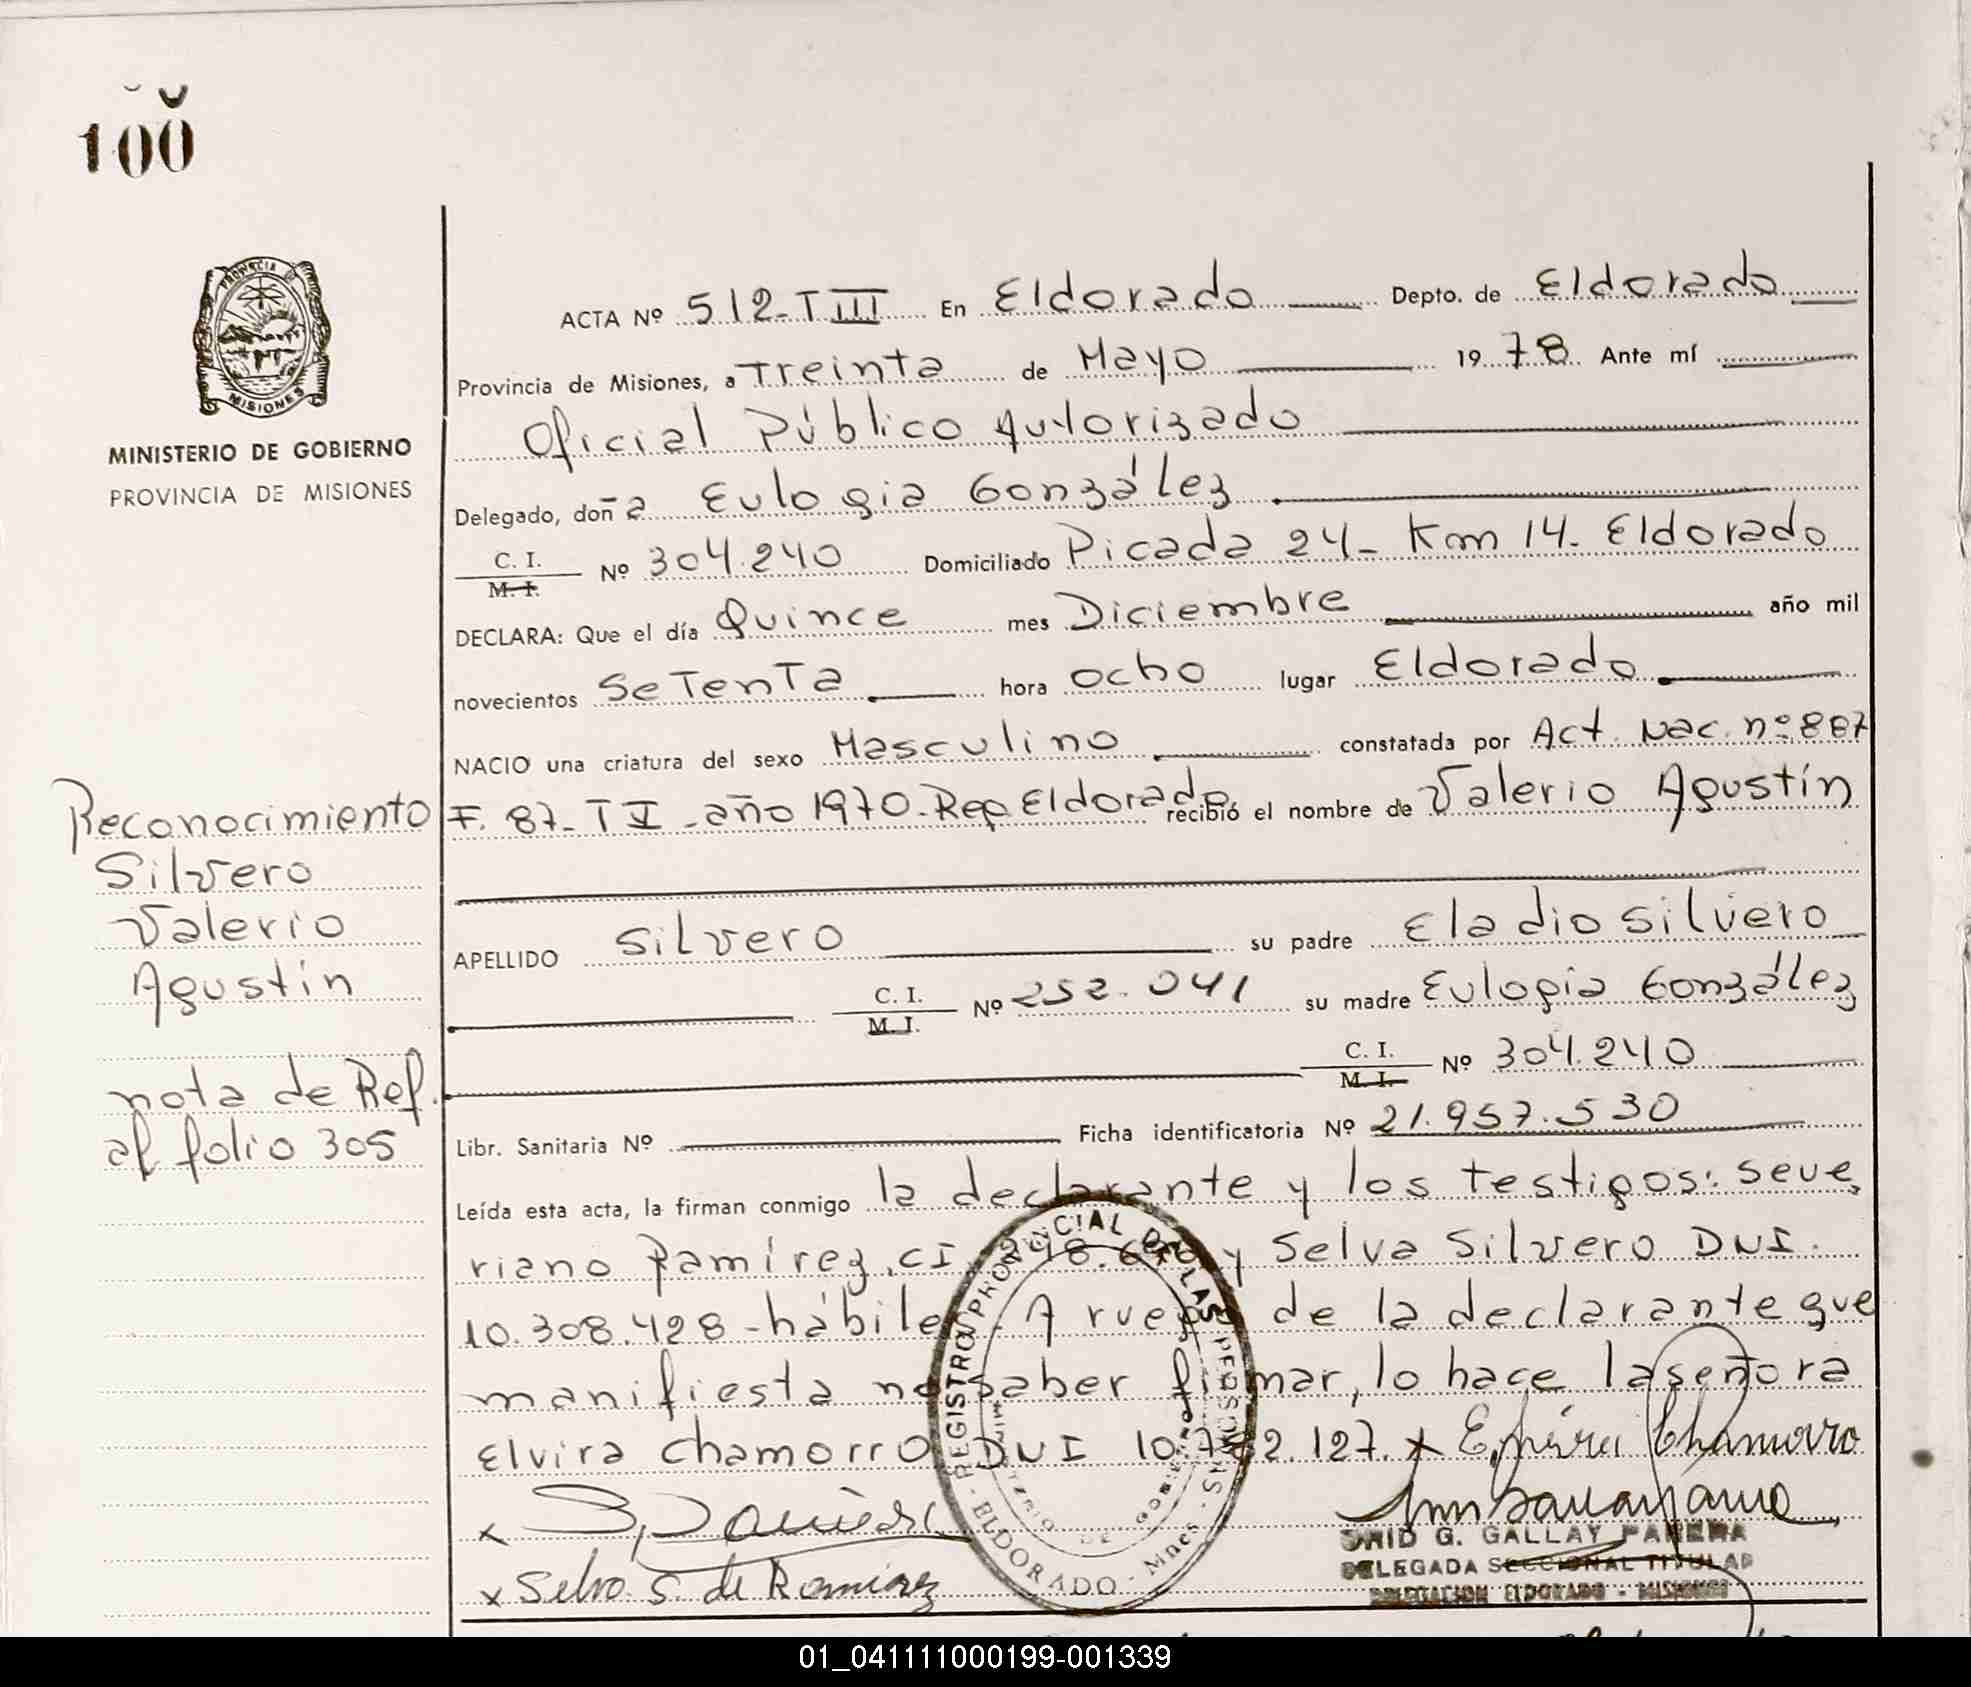 100
PROVINCIA
MISIONES
MINISTERIO DE GOBIERNO
PROVINCIA DE MISIONES
ACTA Nº 512-T III En Eldorado Depto. de Eldorado
Provincia de Misiones, a Treinta de Mayo 1978 Ante mí
Oficial Público Autorizado
Delegado, doña Eulogia González
C. I. M. I. Nº 304.240 Domiciliado Picada 24- Km 14- Eldorado
DECLARA: Que el día Quince mes Diciembre año mil
novecientos Setenta hora ocho lugar Eldorado
NACIO una criatura del sexo Masculino constatada por Act. Nac. nº 887
F. 87- T V - año 1970- Rep. Eldorado recibió el nombre de Valerio Agustín
APELLIDO Silvero su padre Eladio Silvero
C. I. M. I. Nº 252.041 su madre Eulogia González
C. I. M. I. Nº 304.240
Libr. Sanitaria Nº Ficha identificatoria Nº 21.957.530
Leída esta acta, la firman conmigo la declarante y los testigos: Seve,
riano Ramírez, CI y Selva Silvero DNI.
10.308.428 - hábiles. A ruego de la declarante que
manifiesta no saber firmar, lo hace la señora
Elvira Chamorro DNI 127. x Chamorro
x
x Selva S. de Ramirez
Reconocimiento
Silvero
Valerio
Agustín
nota de Ref.
al folio 305
REGISTRO PROVINCIAL DE LAS PERSONAS
- ELDORADO - Mnes -
G. GALLAY PARERA
DELEGADA SECCIONAL TITULAR
DELEGACION ELDORADO - MISIONES
01_041111000199-001339